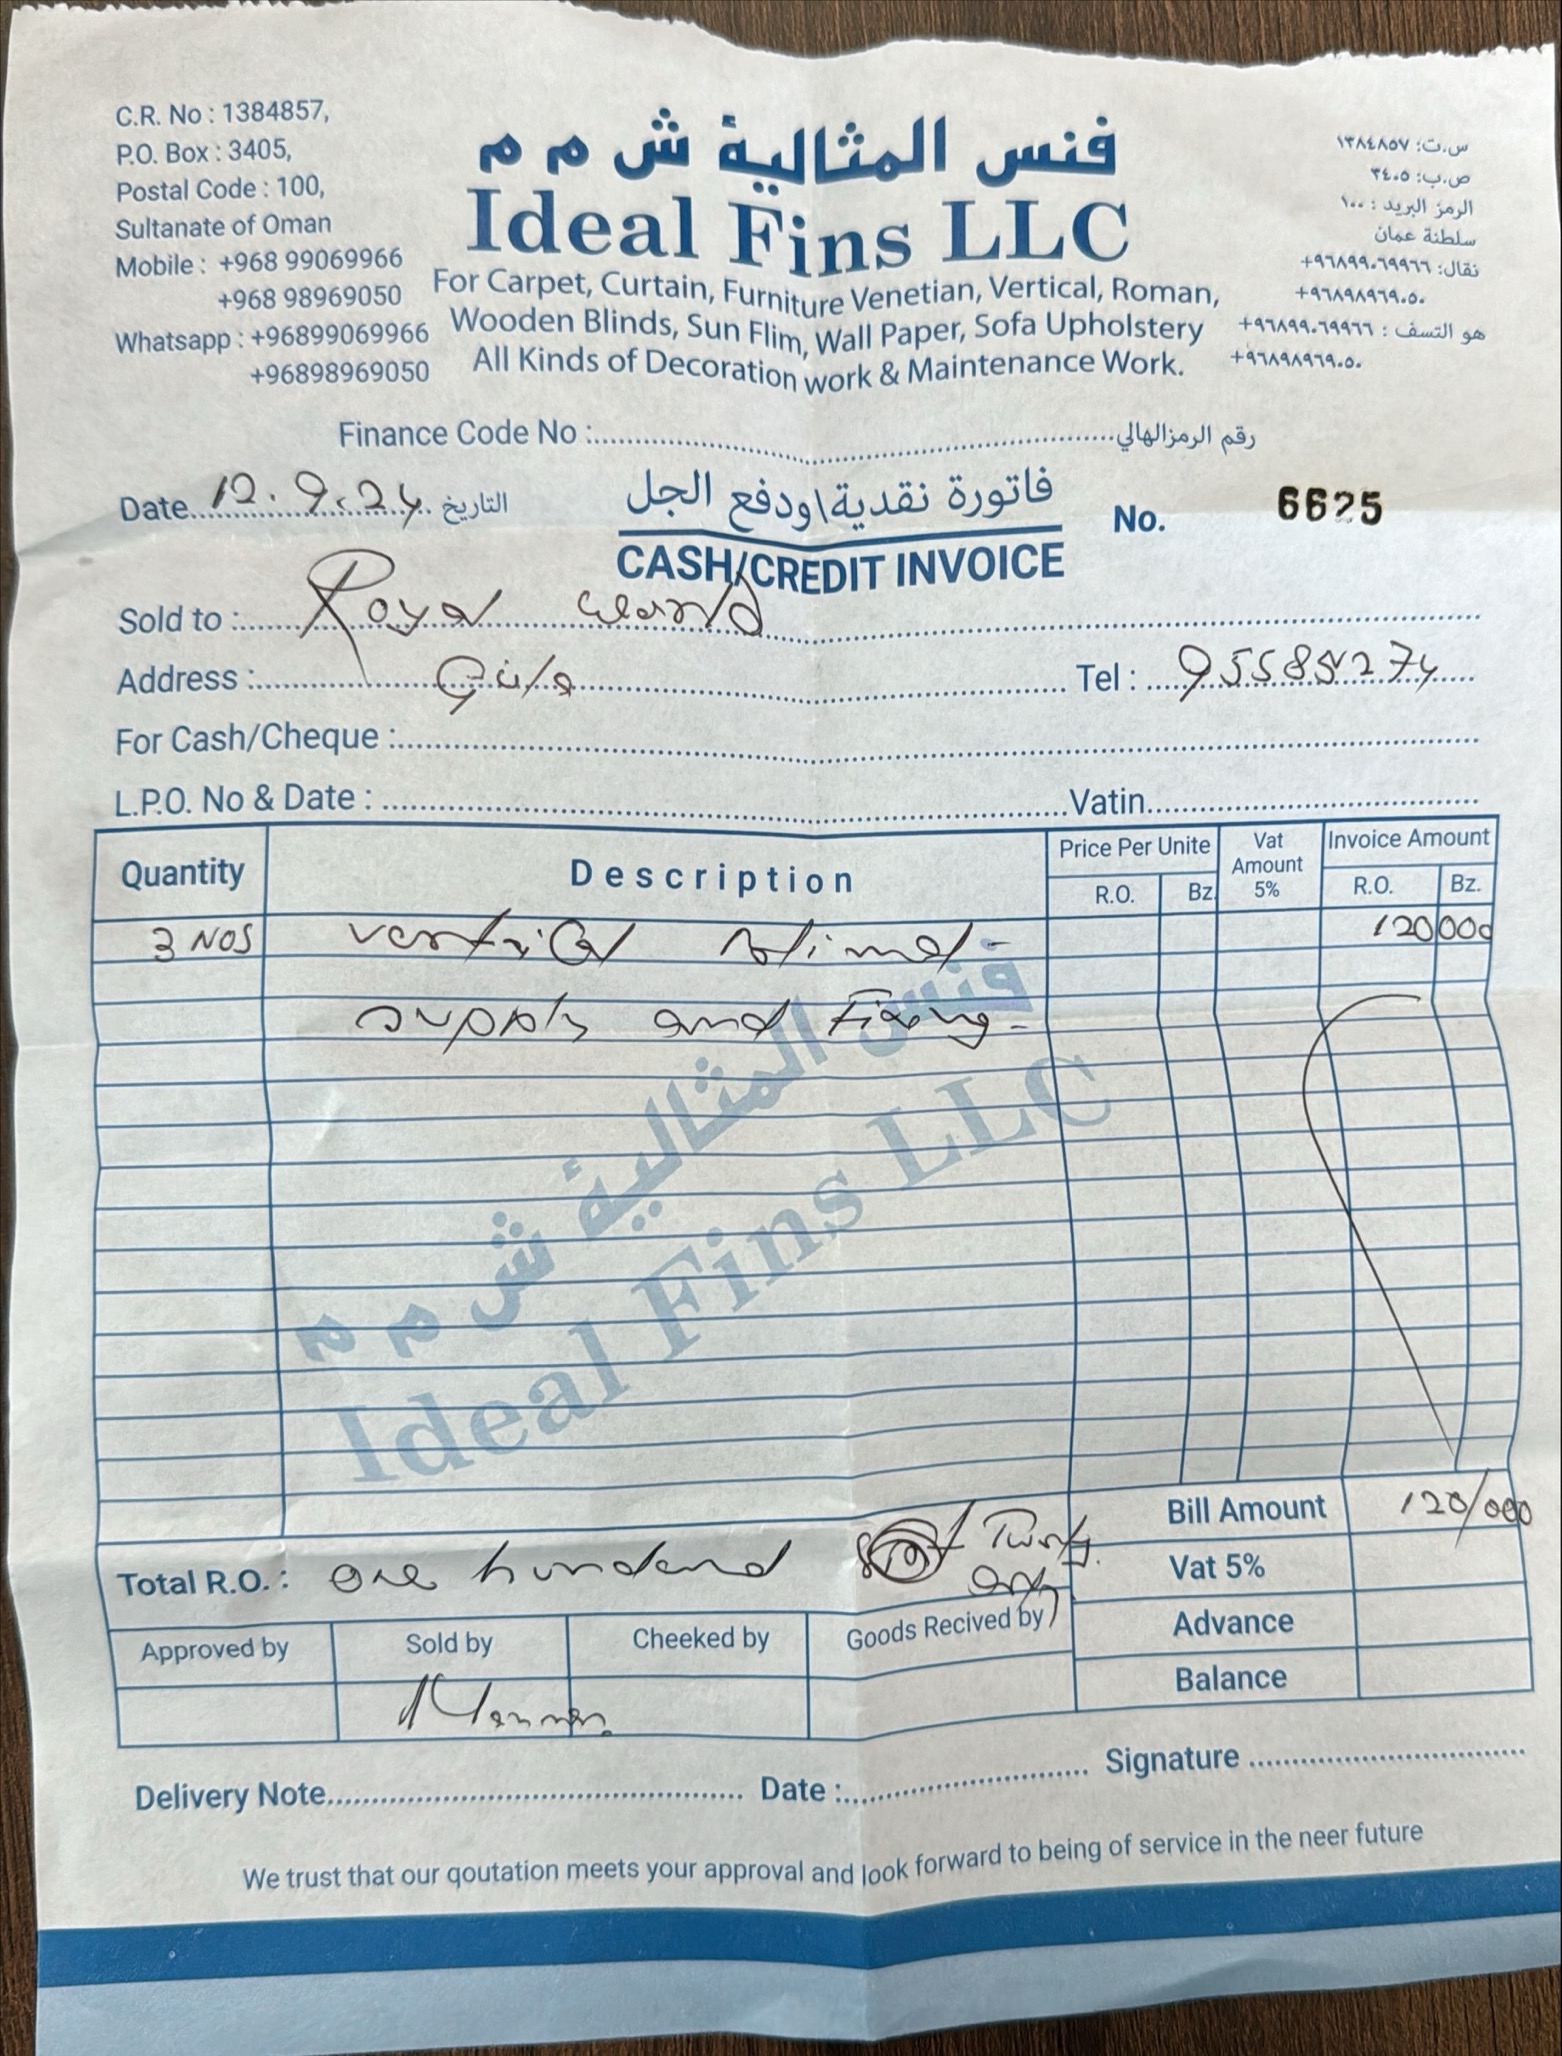 C.R. No : 1384857,
P.O. Box : 3405,
Postal Code : 100,
Sultanate of Oman
Mobile : +968 99069966
+968 98969050
Whatsapp : +96899069966
+96898969050
فنس المثالية ش م م
Ideal Fins LLC
For Carpet, Curtain, Furniture Venetian, Vertical, Roman,
Wooden Blinds, Sun Flim, Wall Paper, Sofa Upholstery
All Kinds of Decoration work & Maintenance Work.
س.ت: ١٣٨٤٨٥٧
ص.ب: ٣٤٠٥
الرمز البريد : ١٠٠
سلطنة عمان
نقال: ٩٦٨٩٩٠٦٩٩٦٦+
٩٦٨٩٨٩٦٩٠٥٠+
هو التسف : ٩٦٨٩٩٠٦٩٩٦٦+
٩٦٨٩٨٩٦٩٠٥٠+
Finance Code No : رقم الرمزالهالي
Date 12.9.24 التاريخ
فاتورة نقدية\ودفع الجل
CASH/CREDIT INVOICE
No. 6625
Sold to : Royal
Address : Tel : 95585274
For Cash/Cheque :
L.P.O. No & Date : Vatin
Quantity Description Price Per Unite Vat Amount 5% Invoice Amount
R.O. Bz. R.O. Bz.
3 NOS vertical blind - 120 000
supply and Fixing -
فنس المثالية ش م م
Ideal Fins LLC
Bill Amount 120/000
Total R.O. : one hundard Twenty only
Vat 5%
Advance
Balance
Approved by Sold by Cheeked by Goods Recived by
Delivery Note Date : Signature
We trust that our qoutation meets your approval and look forward to being of service in the neer future